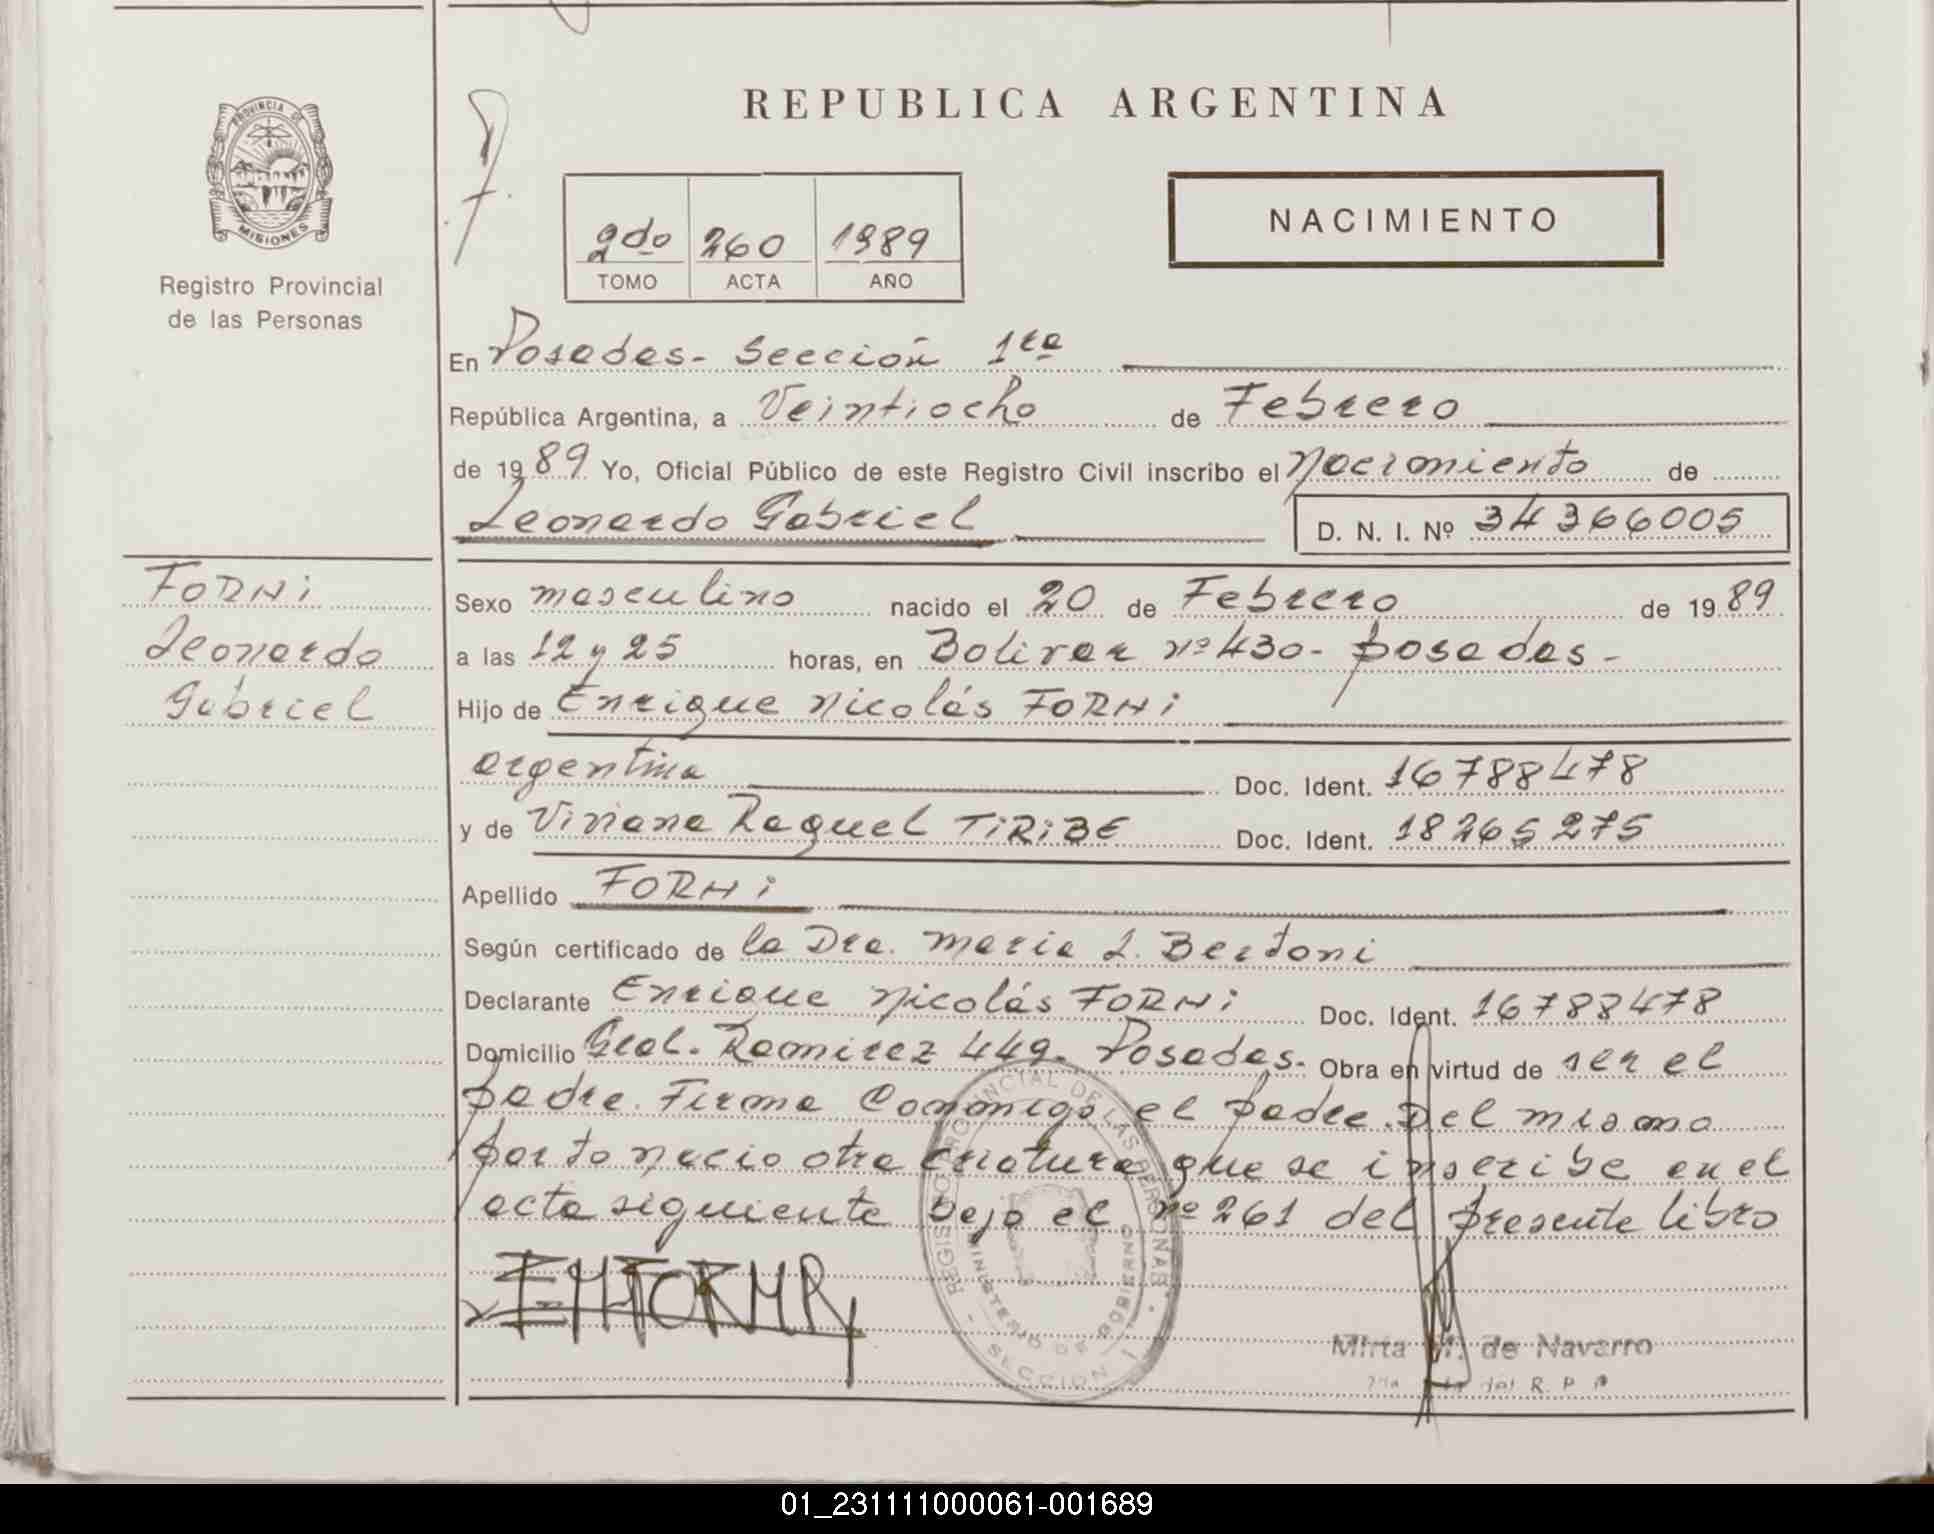 REPUBLICA ARGENTINA
PROVINCIA DE
MISIONES
Registro Provincial
de las Personas
2do 260 1989
TOMO ACTA AÑO
NACIMIENTO
En Posadas- Sección 1ra
República Argentina, a Veintiocho de Febrero
de 1989 Yo, Oficial Público de este Registro Civil inscribo el Nacimiento de
Leonardo Gabriel D. N. I. Nº 34366005
FORNi
Leonardo
Gabriel
Sexo masculino nacido el 20 de Febrero de 1989
a las 12 y 25 horas, en Bolivar nº 430- posadas-
Hijo de Enrique Nicolás FORNi
argentina Doc. Ident. 16788478
y de Viviana Raquel TiRiBE Doc. Ident. 18265275
Apellido FORNi
Según certificado de la Dra. Maria L. Bertoni
Declarante Enrique Nicolás FORNi Doc. Ident. 16788478
Domicilio Gral. Ramirez 449- Posadas- Obra en virtud de ser el
padre. Firma Conmigo el padre. Del mismo
parto nacio otra criatura que se inscribe en el
acta siguiente bajo el nº 261 del presente libro
REGISTRO PROVINCIAL DE LAS PERSONAS
MINISTERIO DE GOBIERNO
SECCION 1
Mirta M. de Navarro
del R. P. P
01_231111000061-001689